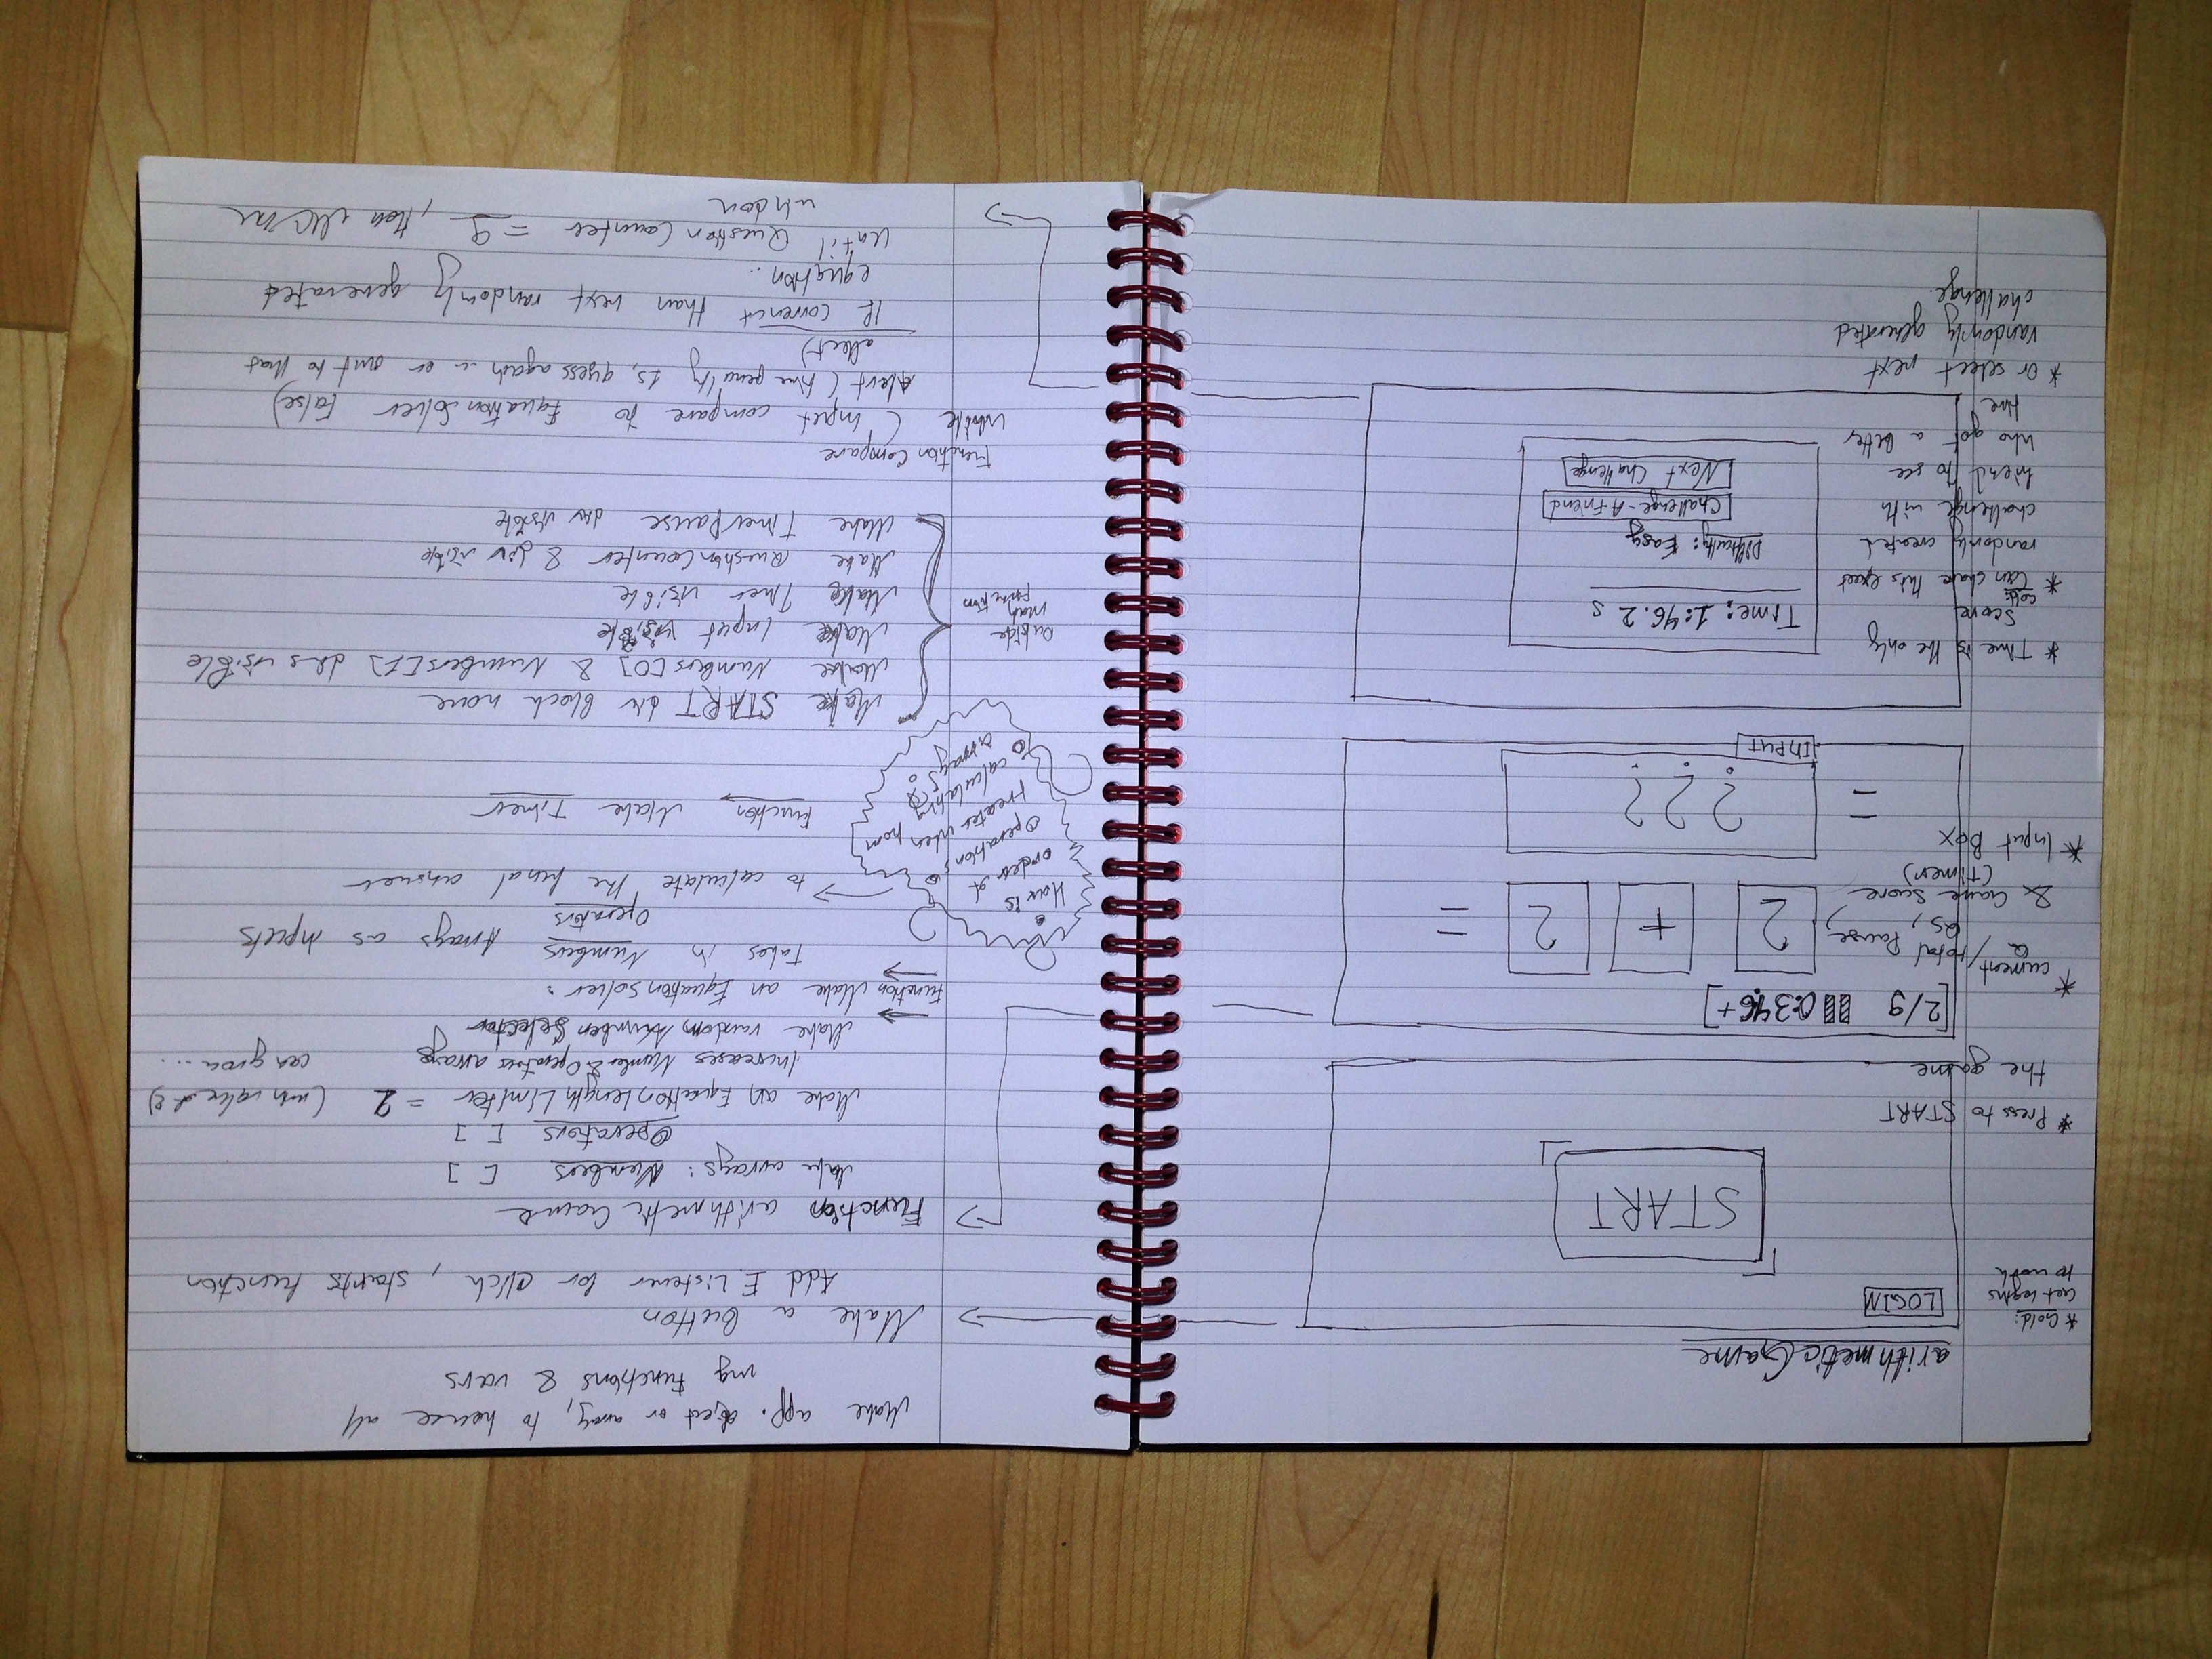 arithmetic Game
* Gold:
Get logins
to work
LOGIN
START
* Press to START
the game
2/9 0:34.6+
* current Q / total Qs, Pause,
& Game Score
(Timer)
2 + 2 =
* Input Box
= ???
INPUT
* Time is the only
score
Time: 1:46.2 s
Difficulty: Easy
Challenge-A-Friend
Next Challenge
* Gold:
Can share this exact
randomly created
challenge with
friend to see
who got a better
time
* Or select next
randomly generated
challenge.
Make app. object or array, to house all
my functions & vars
Make a button
Add E. Listener for click, starts function
Function arithmetic Game
Make arrays: Numbers [ ]
Operators [ ]
Make an Equation length Limiter = 2 (min value of 2)
Increases Number & Operators arrays can grow...
Make random number Selector
Function Make an Equation Solver:
Takes in Numbers Arrays as inputs
Operators
to calculate the final answer
How is
order of
operations
operator when from
calculating
array?
Function Make Timer
Make START div block none
Make Numbers[0] & Numbers[1] divs visible
Make Input visible
Make Timer visible
Make Question Counter & div visible
Make Timer Pause div visible
outside
main
function
Function Compare
While (input compare to Equation Solver False)
Alert (time penalty 1s, guess again in or out to that
alert)
If correct than next randomly generated
equation..
Until Question Counter = 9, then
window